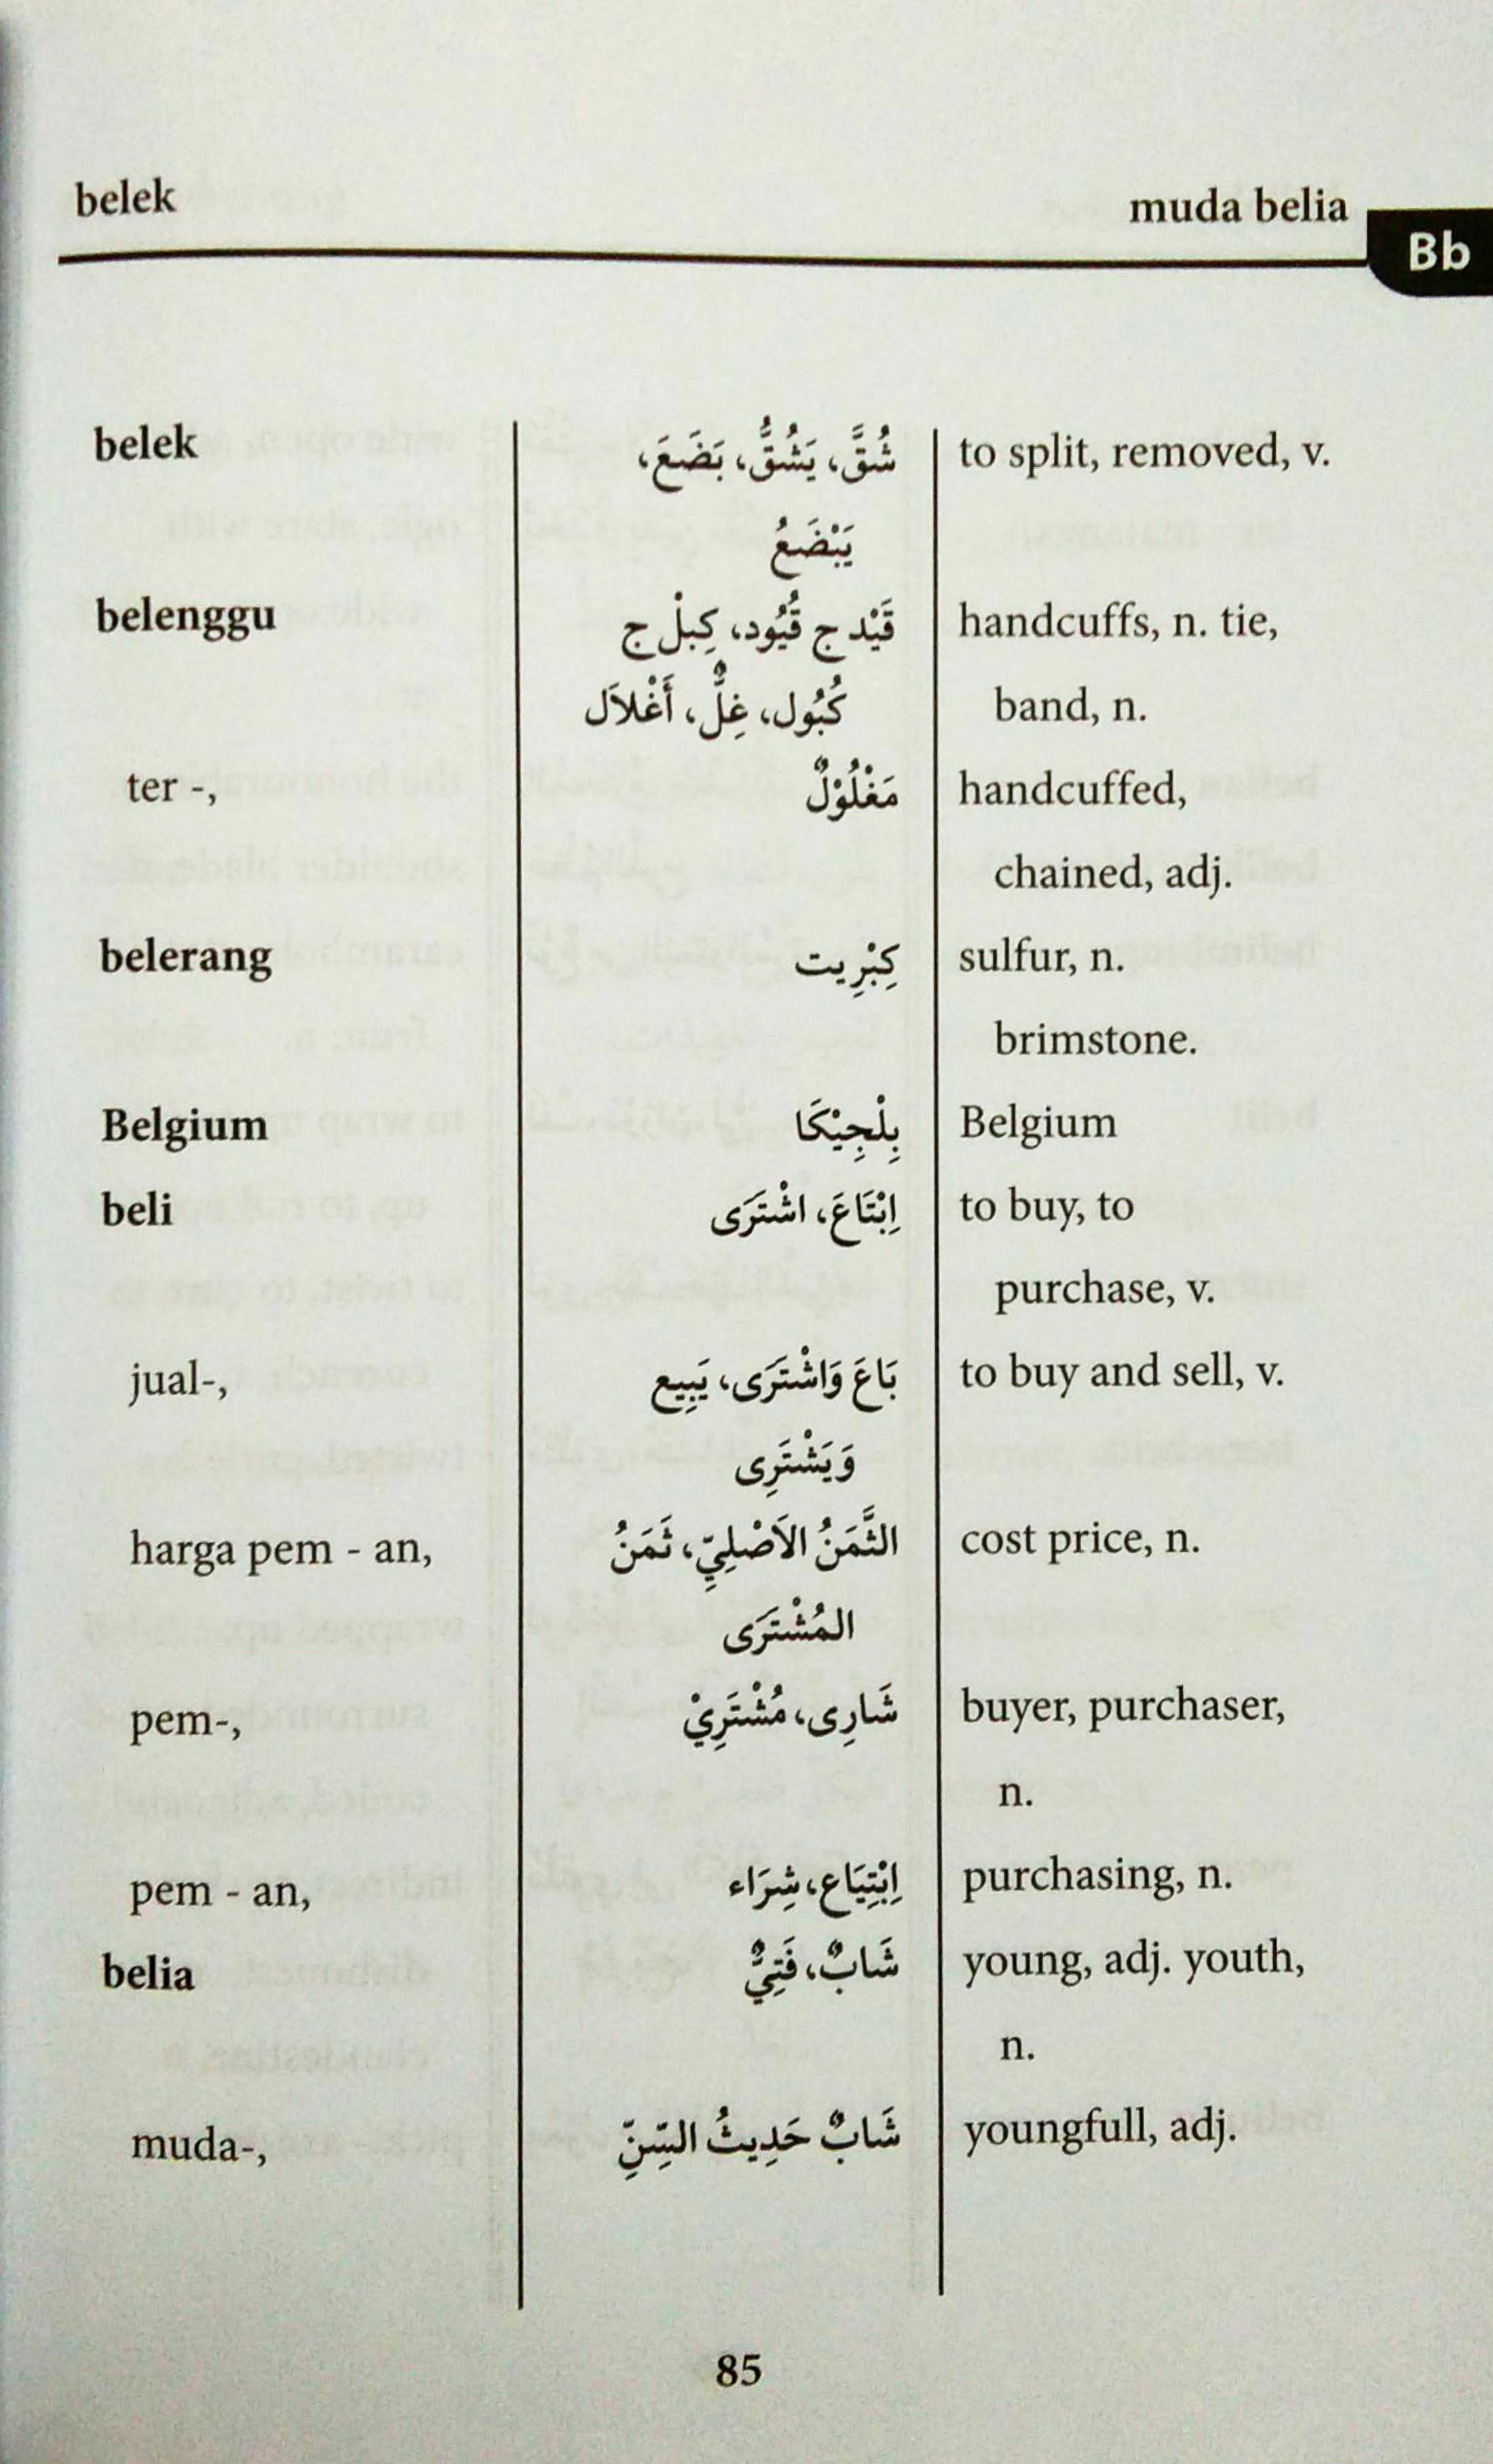 belek
muda belia
Bb
belek
شُقَّ، يَشُقُّ، بَضَعَ،
to split, removed, v.
يَبْضَعُ
belenggu
قَيْد ج قُيُود، كِبلْ ج
handcuffs, n. tie,
كُبُول، غِلٌّ، أَغْلاَل
band, n.
ter -,
مَغْلُوْلٌ
handcuffed,
chained, adj.
belerang
كِبْرِيت
sulfur, n.
brimstone.
Belgium
بِلْجِيْكَا
Belgium
beli
اِبْتَاعَ، اشْتَرَى
to buy, to
purchase, v.
jual-,
بَاعَ وَاشْتَرَى، يَبِيع
to buy and sell, v.
وَيَشْتَرِى
harga pem - an,
الثَّمَنُ الاَصْلِيِّ، ثَمَنُ
cost price, n.
المُشْتَرَى
pem-,
شَارِى، مُشْتَرِيْ
buyer, purchaser,
n.
pem - an,
اِبْتِيَاع، شِرَاء
purchasing, n.
belia
شَابٌ، فَتِيٌّ
young, adj. youth,
n.
muda-,
شَابٌ حَدِيثُ السِّنِّ
youngfull, adj.
85